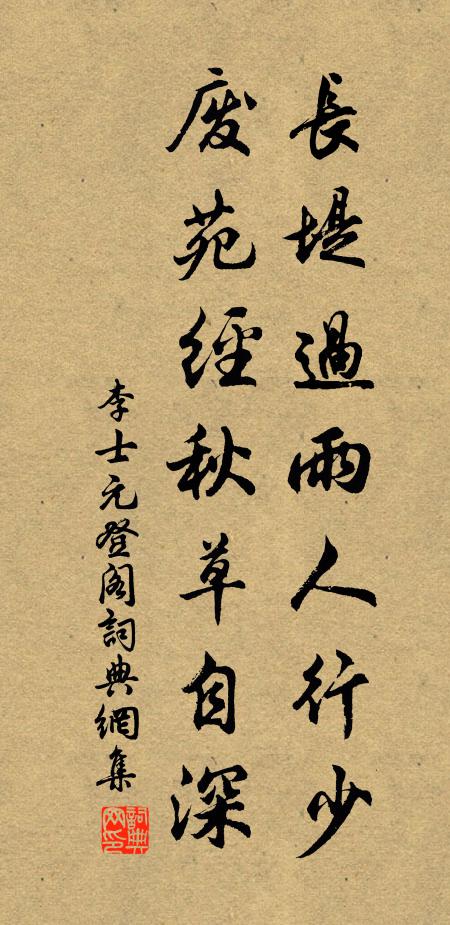 長堤過雨人行少
廢苑經秋草自深
李士元登阁詞典網集
詞典网印